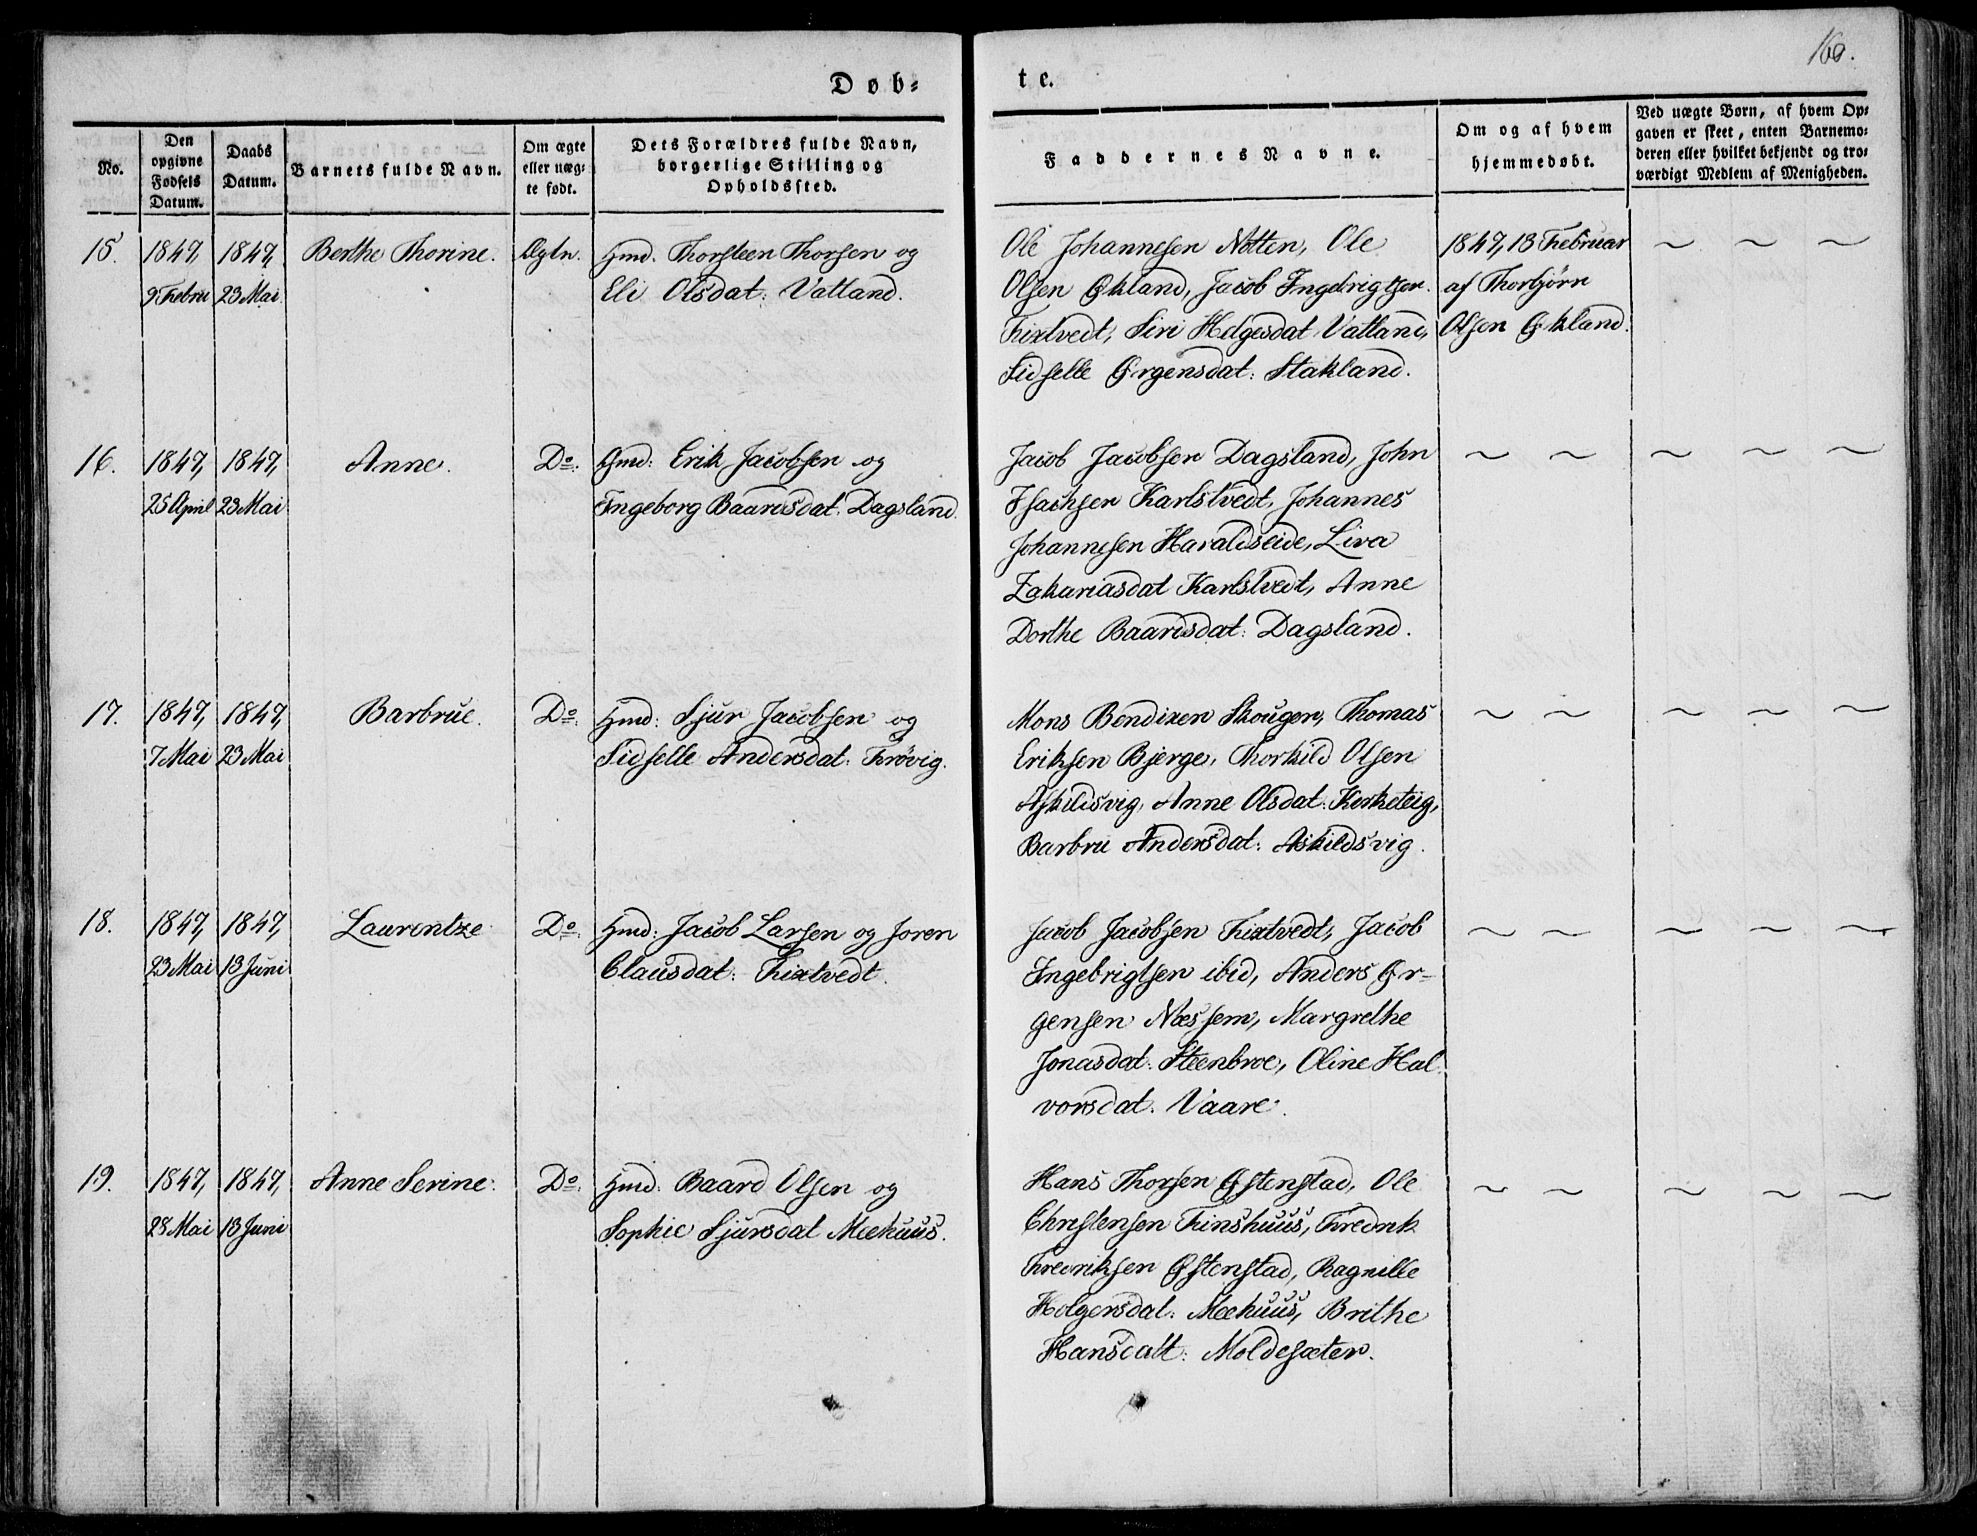 160.
Døb-
te.
No.
Den
opgivne
Fødsels
Datum.
Daabs
Datum.
Barnets fulde Navn.
Om ægte
eller uæg-
te født.
Dets Forældres fulde Navn,
borgerlige Stilling og
Opholdssted.
Faddernes Navne.
Om og af hvem
hjemmedøbt.
Ved uægte Børn, af hvem Op-
gaven er skeet, enten Barnemo-
deren eller hvilket bekjendt og tro-
værdigt Medlem af Menigheden.
15.
1847,
9 Febru
1847,
23 Mai
Berthe Thorine.
Ægtn.
Gmd. Thorsteen Thorsen og
Eli Olsdat: Vatland.
Ole Johannesen Nøtten, Ole
Olsen Økland, Jacob Ingebrigtsen
Fixtvedt, Siri Helgesdat: Vatland,
Sidselle Ørgensdat: Stakland.
1847, 13 Februar
af Thorbjørn
Olsen Økland.
~ ~ ~
16.
1847,
25 April
1847,
23 Mai
Anne.
Do.
Gmd: Erik Jacobsen og
Ingeborg Baardsdat: Dagsland.
Jacob Jacobsen Dagsland, John
Isachsen Karlstvedt, Johannes
Johannesen Haraldseide, Liva
Zakariasdat Karlstvedt, Anne
Dorthe Baardsdat: Dagsland.
~ ~ ~ ~ ~ ~
17.
1847,
7 Mai
1847,
23 Mai
Barbrue.
Do.
Gmd: Sjur Jacobsen og
Sidselle Andersdat: Frøvig.
Mons Bendixen Skougen, Thomas
Eriksen Bjerge, Thorkild Olsen
Askildsvig, Anne Olsdat: Kerketeig,
Barbru Andersdat: Askildsvig.
~ ~ ~ ~ ~
18.
1847,
23 Mai
1847,
13 Juni
Laurentze
Do.
Gmd: Jacob Larsen og Joren
Clausdat: Fixtvedt.
Jacob Jacobsen Fixtvedt, Jacob
Ingebrigtsen ibid, Anders Ør-
gensen Næssem, Margrethe
Jonasdat: Steenbroe, Oline Hal-
vorsdat. Vaare.
~ ~ ~ ~ ~ ~
19.
1847,
28 Mai
1847,
13 Juni
Anne Serine.
Do.
Gmd: Baard Olsen og
Sophie Sjursdat Meehuus.
Hans Thorsen Østenstad, Ole
Christensen Finshuus, Fredrik
Fredriksen Østenstad, Ragnille
Holgersdat: Meehuus, Brithe
Hansdatt: Moldesæter.
~ ~ ~ ~ ~